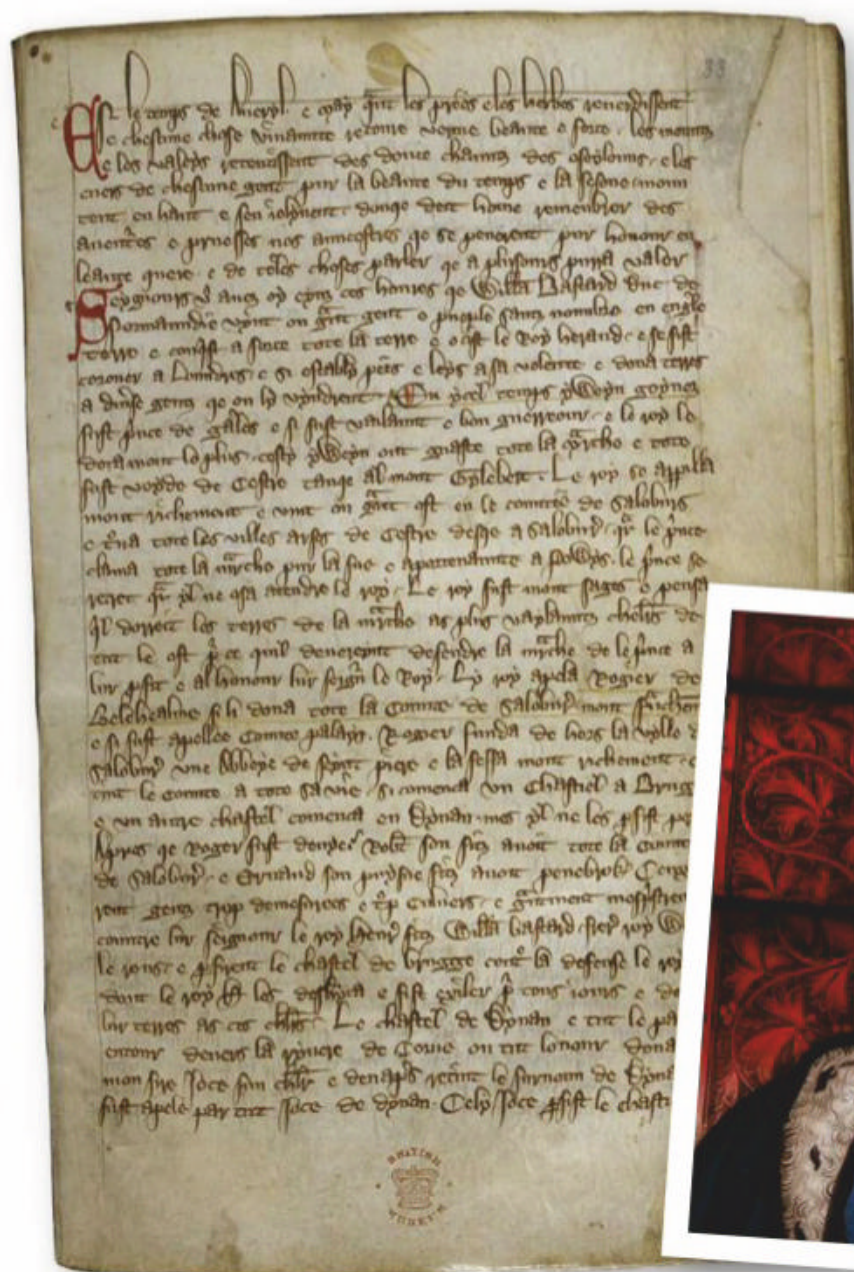 33
En le temps de Averyl e may qnt les prees e les herbes reverdissent
e chescune chose vivaunte recovre vertue beaute e force les mountz
e les valeys retentissent des douce chauntz des oseylouns e les
cuers de chescune gent pur la beaute du temps e la sesone moun
tent en haut e sen jolyvent donqe deit home remenbrer des
aventres e pruesses nos auncestres qe se penerent pur honour en
leaute quere e de teles choses parler qe a plusours purra valer
Seygnours avez oy eynz ces houres qe Willā Bastard duc de
Normaundie vynt ou grt gent e pueple santz nombre en engle
terre e conquist a force tote la terre e ocist le Roy heraud e se fist
coroner a Loundres e si estably pees e leys a sa volente e dona terres
a diverse gentz qe ou ly vyndrent En ycel temps yweyn goynez
fust prince de gales e si fust vailaunt e bon guerreour e le roy le
dota mout le plus cesty yweyn out guaste tote la marche e tote
fust voyde de Cestre tanqe al mont Gylebert Le roy se appilla
mout richement e vint ou grt ost en le countee de Saloburs
e trova tote les villes arses de Cestre desqe a Salobur qr le prince
clama tote la marche pur la sue e aportenaunte a Powys le prince se
retret qr yl ne osa attendre le roy Le roy fust mout sages e pensa
qil dorreit les terres de la marche as plus vaylauntz chelrs de
tut le ost p ce quil devereynt defendre la marche de le prince a
lur pfit e al honour lur seign le Roy Ly roy apela Rogier de
Belehealme si li dona tote la Counte de Salobur mout
e si fust apellee Counte palays Rogier funda de hors la vylle
Salobur une Abbeye de seynt piere e la feffa mout richement
tint le Counte a tote sa vie si comenca un Chastiel a Brugg
e un autre chastel comenca en Dynan mes yl ne les pfist
Apres qe Roger fust Robt son fitz avoit tote la
de Salobur e Ernaud son puysne fitz avoit penebrok
rent gentz trop demesurees e trp culvers e
countre lur seignour le roy henr fitz Willā bastard frer roy
le rous e pfirent le chastel de brugge contr la defense le roy
dont le roy h les desheryta e fist exiler p tous jours e
lur terres as ces chlrs Le chastel de Dynan e tut le
entour devers la ryvere de Corve ou tut lonour dona
mon sire Joce son chlr e denaps retint le surnoun de
fust apele par tut Joce de dynan Cely Joce pfist le
BRITISH
MUSEUM